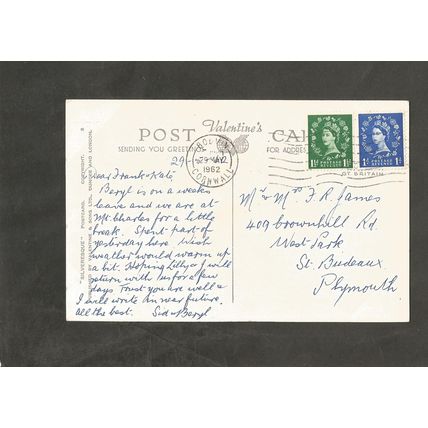 POST Valentine's CARD
SENDING YOU GREETINGS
FOR ADDRESS
29 MAY
1962
CORNWALL
POSTAGE REVENUE
1½D 1½D
POSTAGE REVENUE
1D 1D
GT BRITAIN
"SILVERESQUE" POSTCARD. COPYRIGHT.
VALENTINE & SONS LTD. DUNDEE AND LONDON.
29
Dear Frank & Kate,
Beryl is on a weeks
leave and we are at
St. Charles for a little
break. Spent part of
yesterday here. Wish
weather would warm up
a bit. Hoping Lilly & I will
return with us for a few
days. Trust you are well &
I will write in near future.
All the best. Sid & Beryl
Mr & Mrs F. R. James
409 Crownhill Rd.
West Park
St. Budeaux
Plymouth